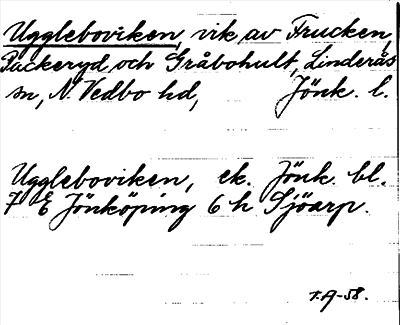 Uggleboviken, vik av Frucken,
Packeryd och Gråbohult, Linderås
sn, N. Vedbo hd, Jönk. l.
Uggleboviken, ek. Jönk. bl.
7 E Jönköping 6 h Sjöarp.
T.A-58.